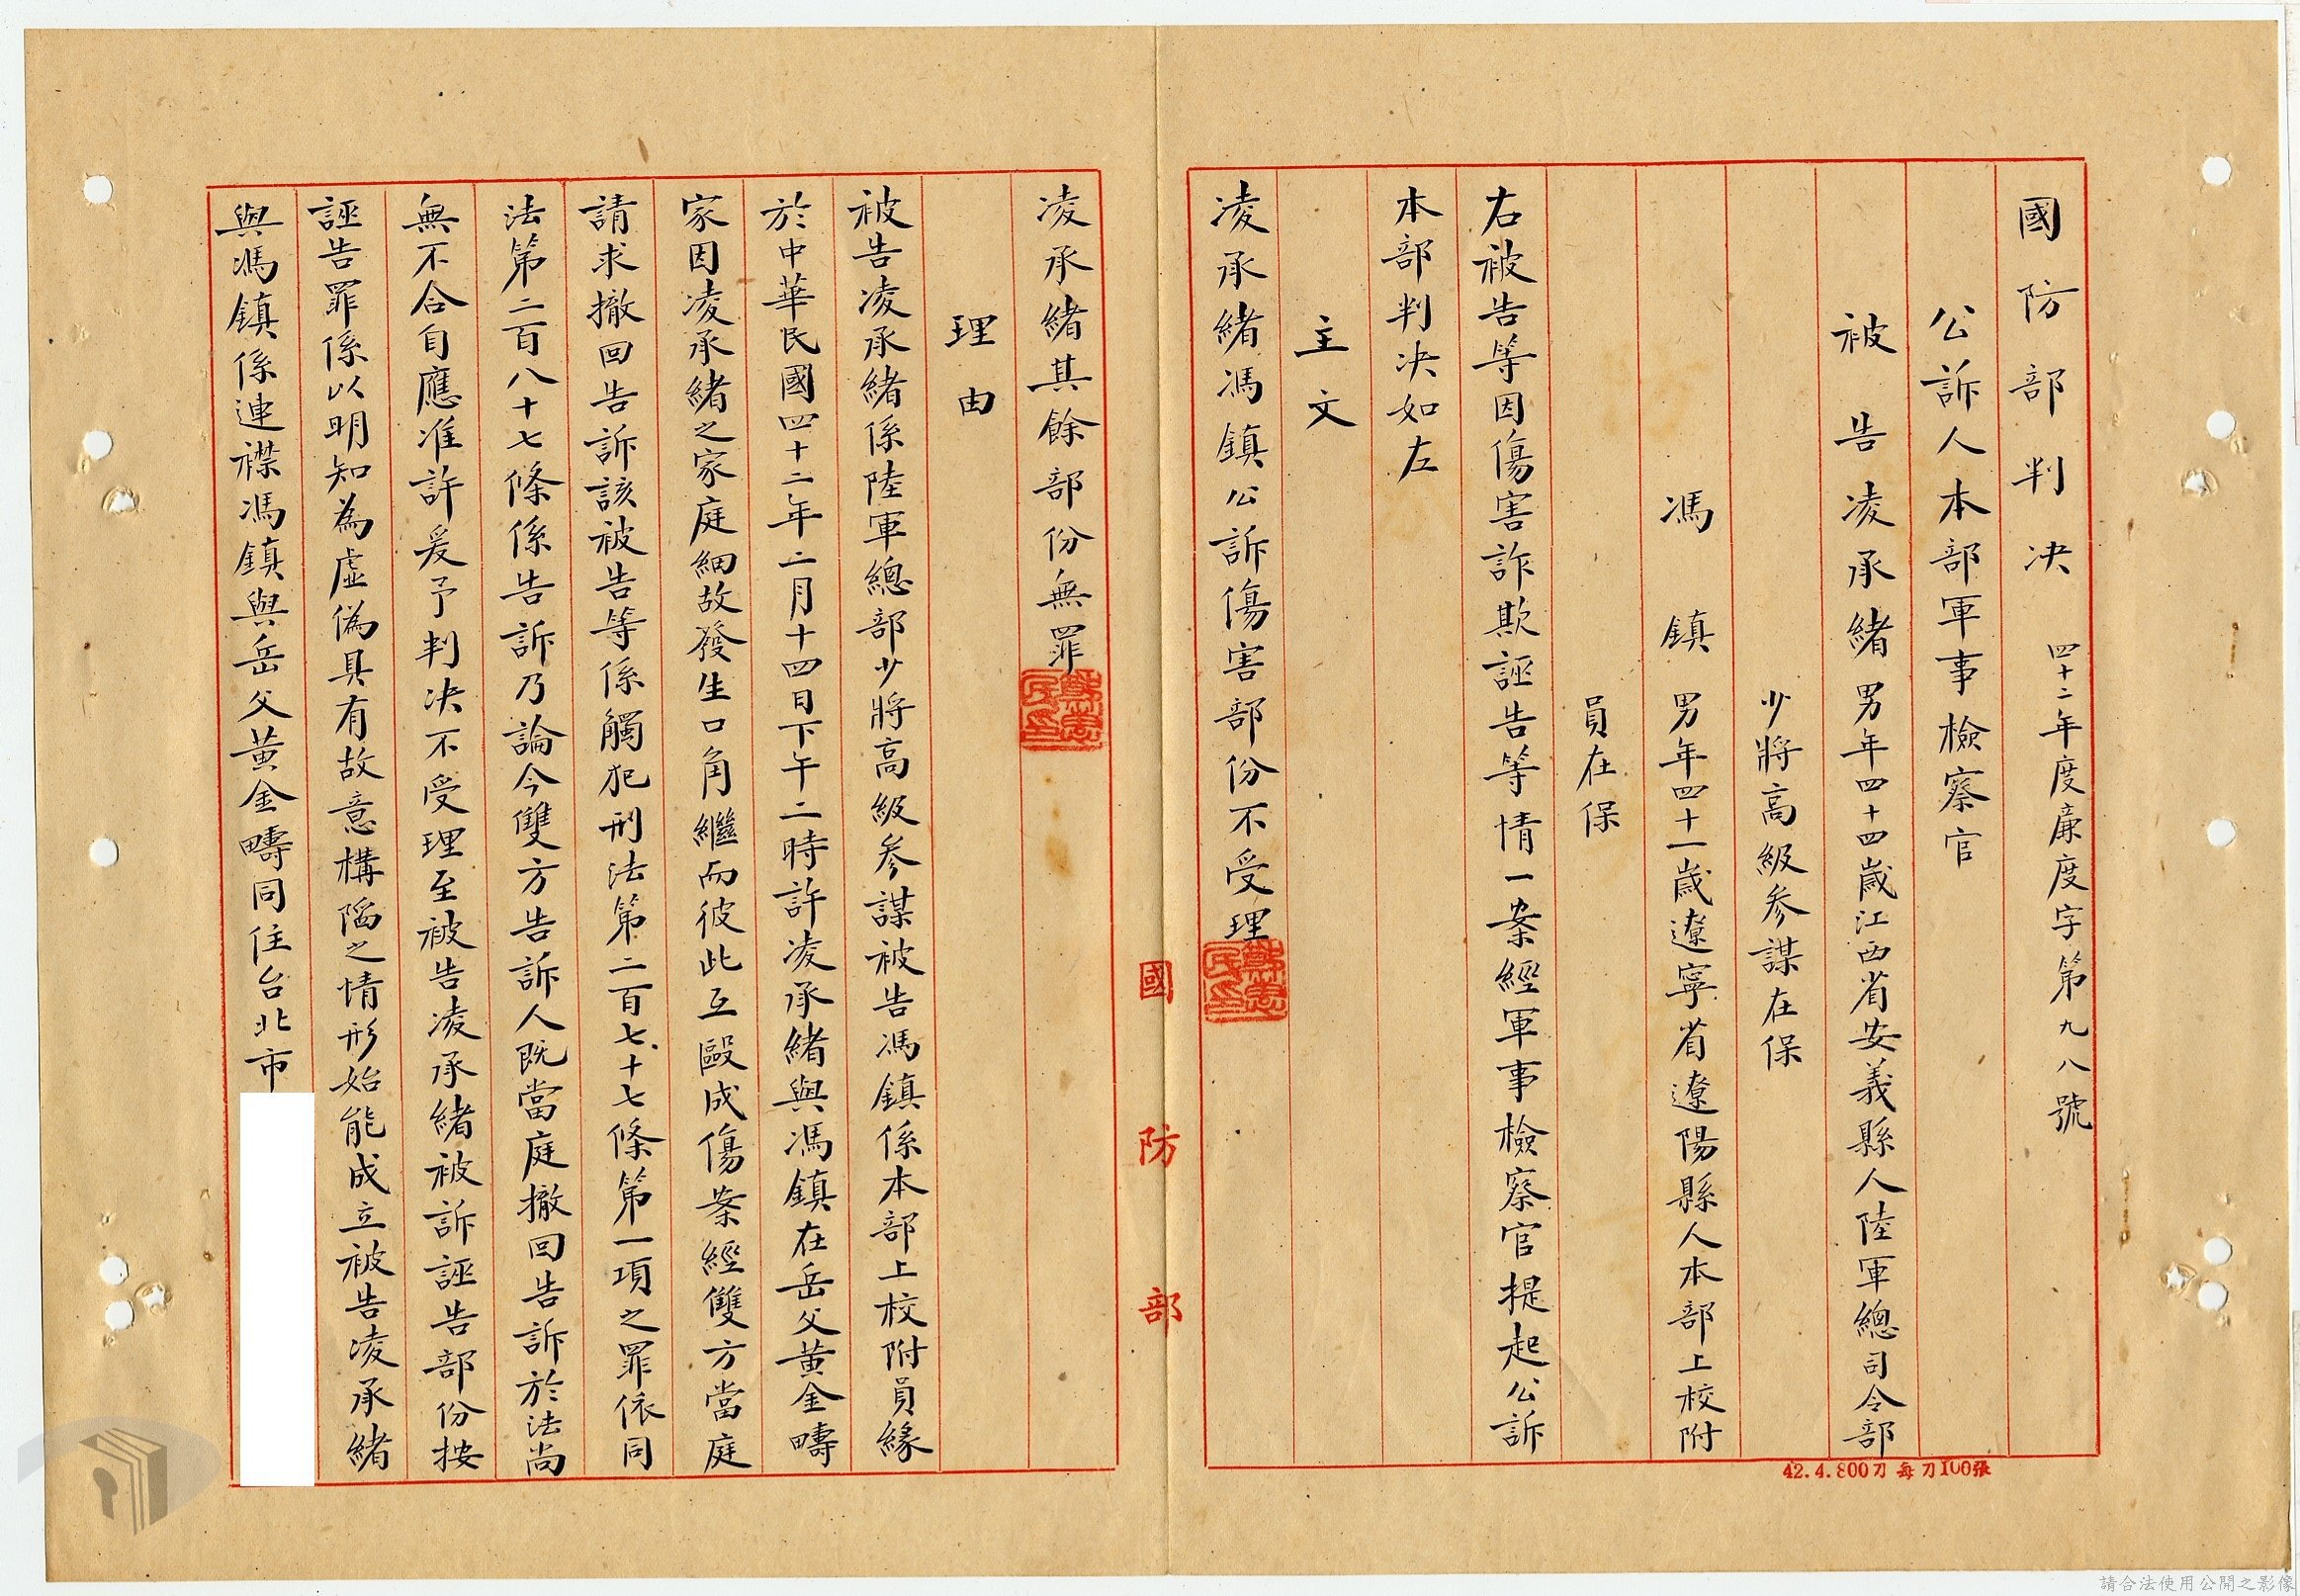 國防部判决 四十二年度廉度字第九八號
公訴人本部軍事檢察官
被告凌承緒男年四十四歲江西省安義縣人陸軍總司令部
少將高級參謀在保
馮鎮男年四十一歲遼寧省遼陽縣人本部上校附
員在保
右被告等因傷害詐欺誣告等情一案經軍事檢察官提起公訴
本部判决如左
主文
凌承緒馮鎮公訴傷害部份不受理
國防部
凌承緒其餘部份無罪
理由
被告凌承緒係陸軍總部少將高級參謀被告馮鎮係本部上校附員緣
於中華民國四十二年二月十四日下午二時許凌承緒與馮鎮在岳父黃金疇
家因凌承緒之家庭細故發生口角繼而彼此互毆成傷案經雙方當庭
請求撤回告訴該被告等係觸犯刑法第二百七十七條第一項之罪依同
法第二百八十七條係告訴乃論今雙方告訴人既當庭撤回告訴於法尚
無不合自應准許爰予判决不受理至被告凌承緒被訴誣告部份按
誣告罪係以明知為虛偽具有故意構陷之情形始能成立被告凌承緒
與馮鎮係連襟馮鎮與岳父黃金疇同住台北市
42.4.800刀每刀100張
請合法使用公開之影像